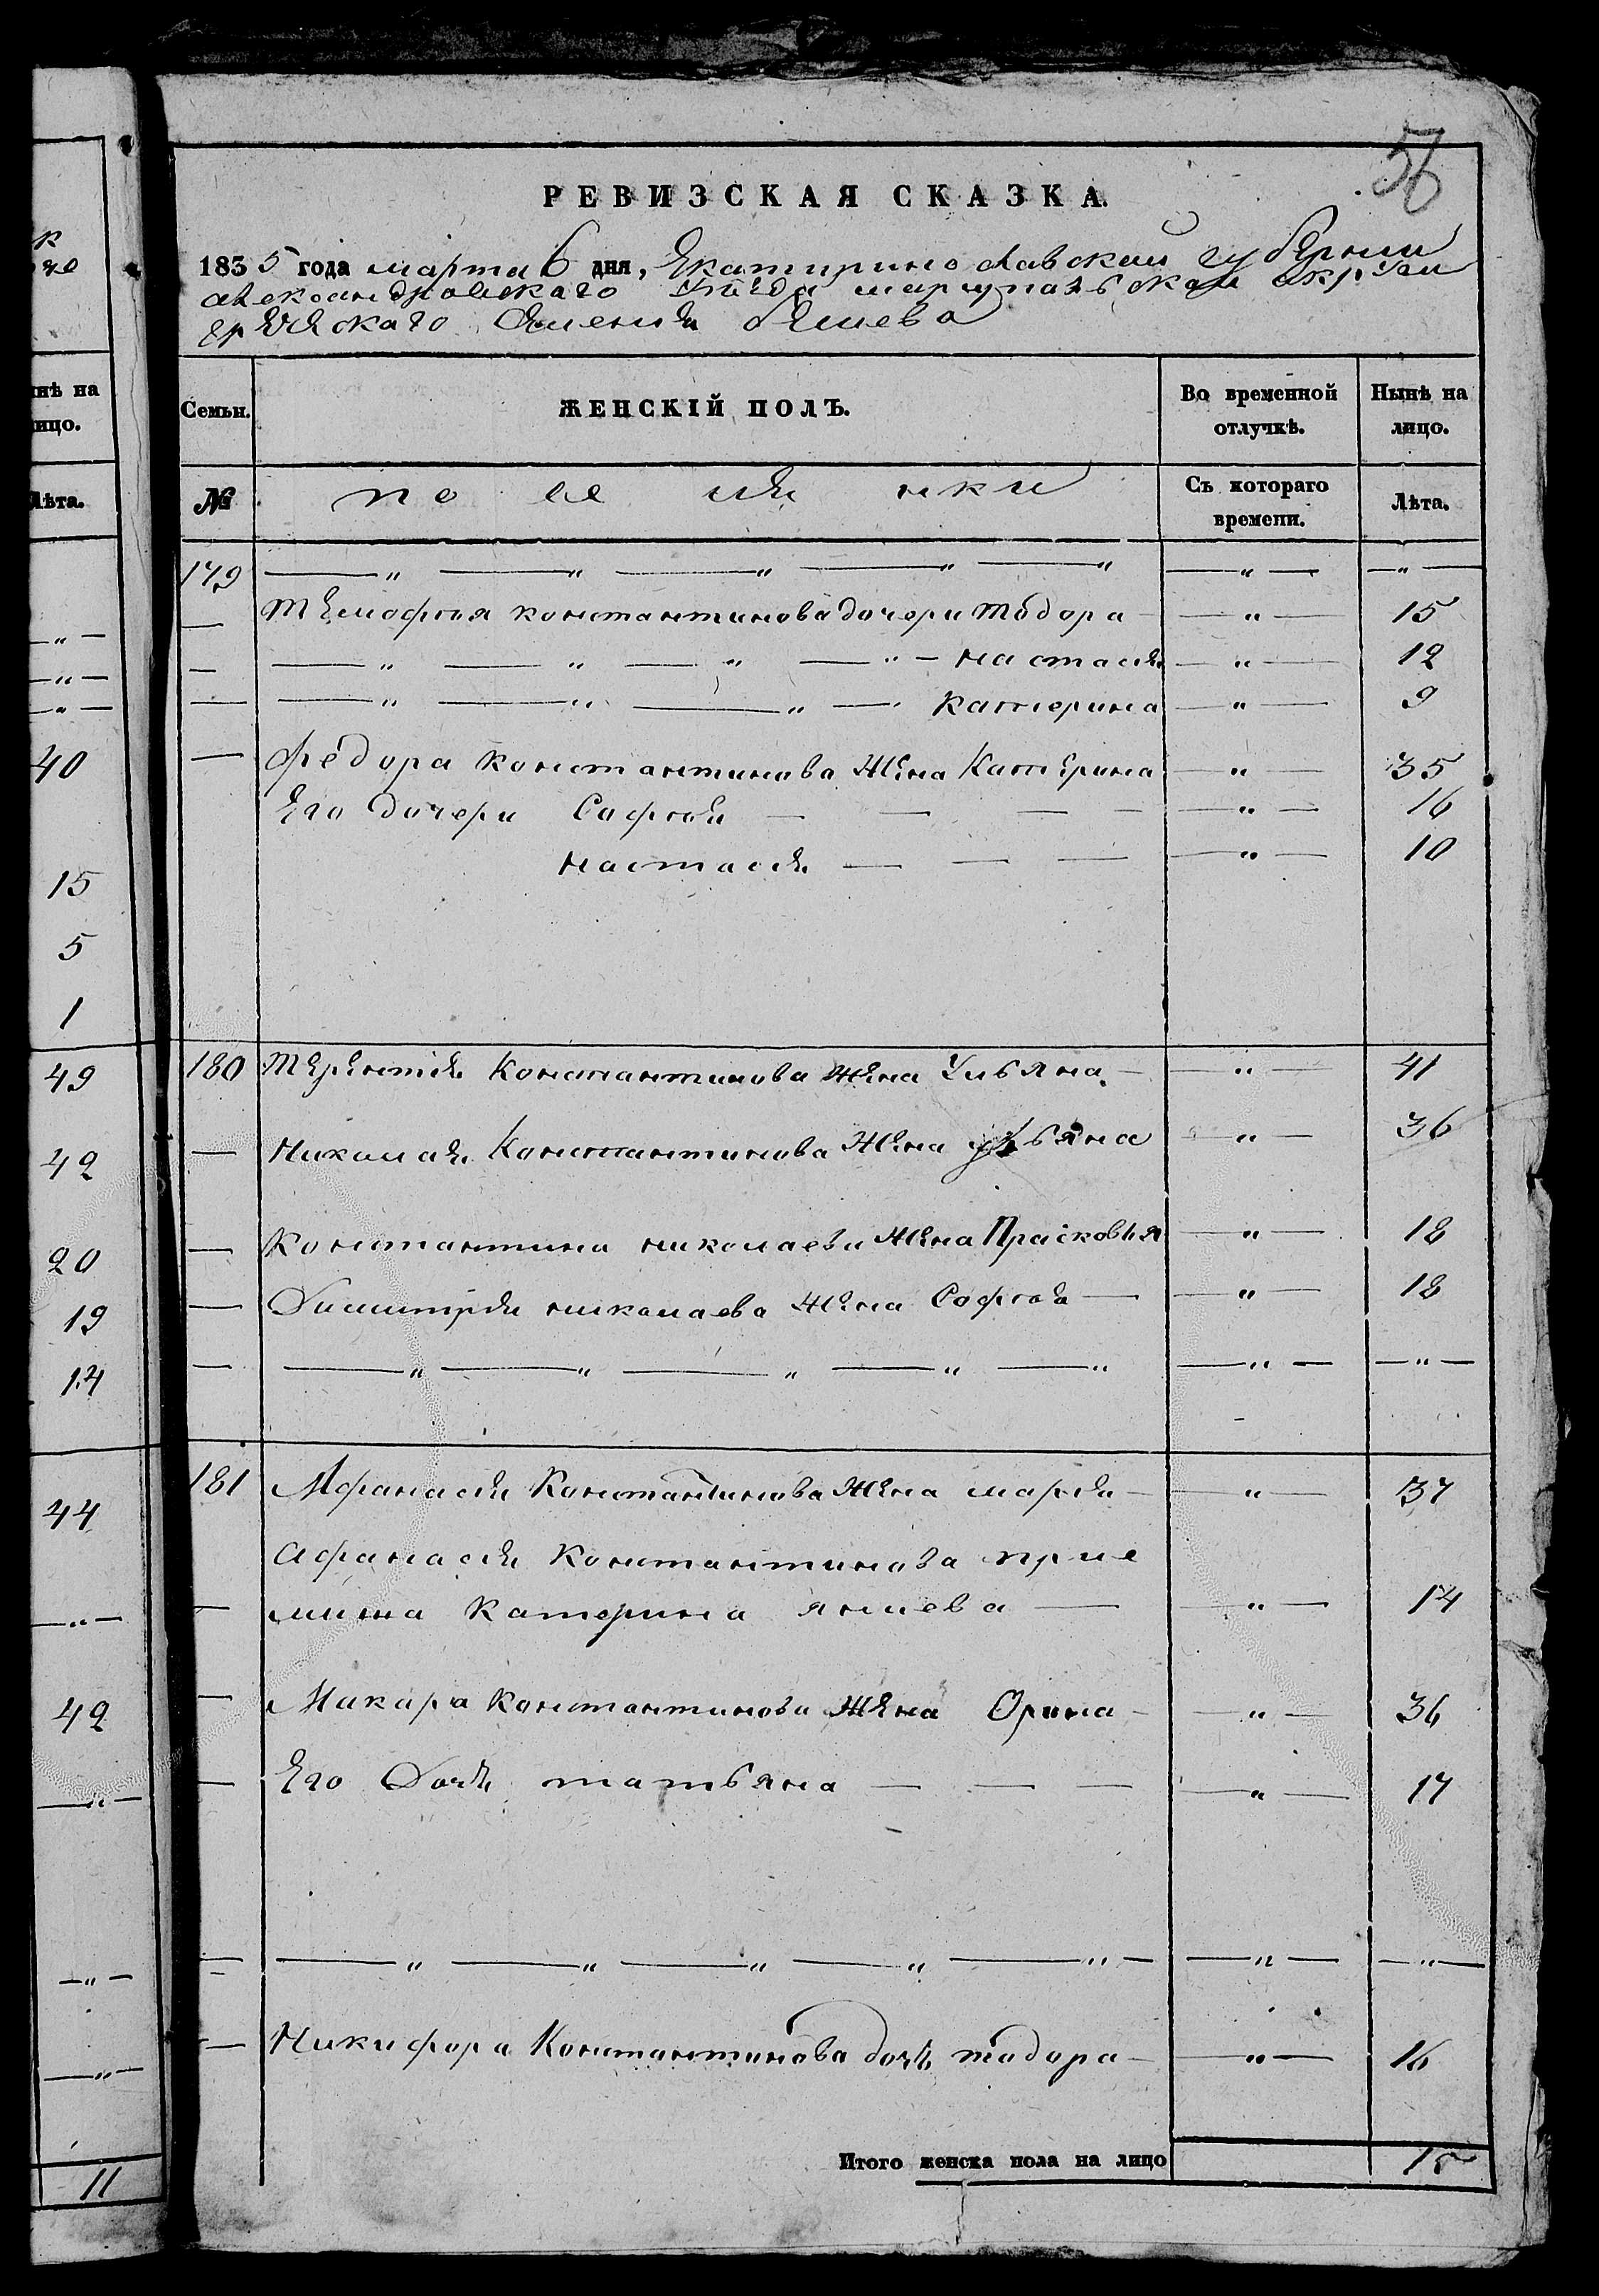 к
че
нѣ на
ицо.
Лѣта.
— " —
— " —
— " —
40
15
5
1
49
42
20
19
14
44
— " —
42
— " —
— " —
— " —
11
56
РЕВИЗСКАЯ СКАЗКА.
1835 года марта 6 дня, Екатиринославской губернии
александровскаго уѣзда мариупольской округи
греческаго селения бешева
Семьи. ЖЕНСКІЙ ПОЛЪ. Во временной отлучкѣ. Ныне на лицо.
№ поселянки Съ котораго времени. Лѣта.
179 — " — " — " — " — " — " — — " —
— Тимофея константинова дочери тодора — — " — 15
— — " — " — " — " — настасия — " — 12
— — " — " — " — катерина — " — 9
— федора константинова жена Катерина — " — 35
Его дочери София — — — — — " — 16
настасия — — — — " — 10
180 терентия Константинова жена Ульяна — — " — 41
— Николая Константинова жена ульяна — " — 36
— Константина николаева жена Прасковья — " — 18
— Димитрия николаева жена София — — " — 18
— — " — " — " — " — " — " — — " —
181 Афанасия Константинова жена мария — — " — 37
Афанасия Константинова прие
— мишна катерина яниева — — " — 14
— Макара константинова жена Орина — — " — 36
— Его дочь татьяна — — — — " — 17
— — " — " — " — " — " — — " — — " —
— Никифора Константинова дочь тодора — — " — 16
Итого женска пола на лицо 15